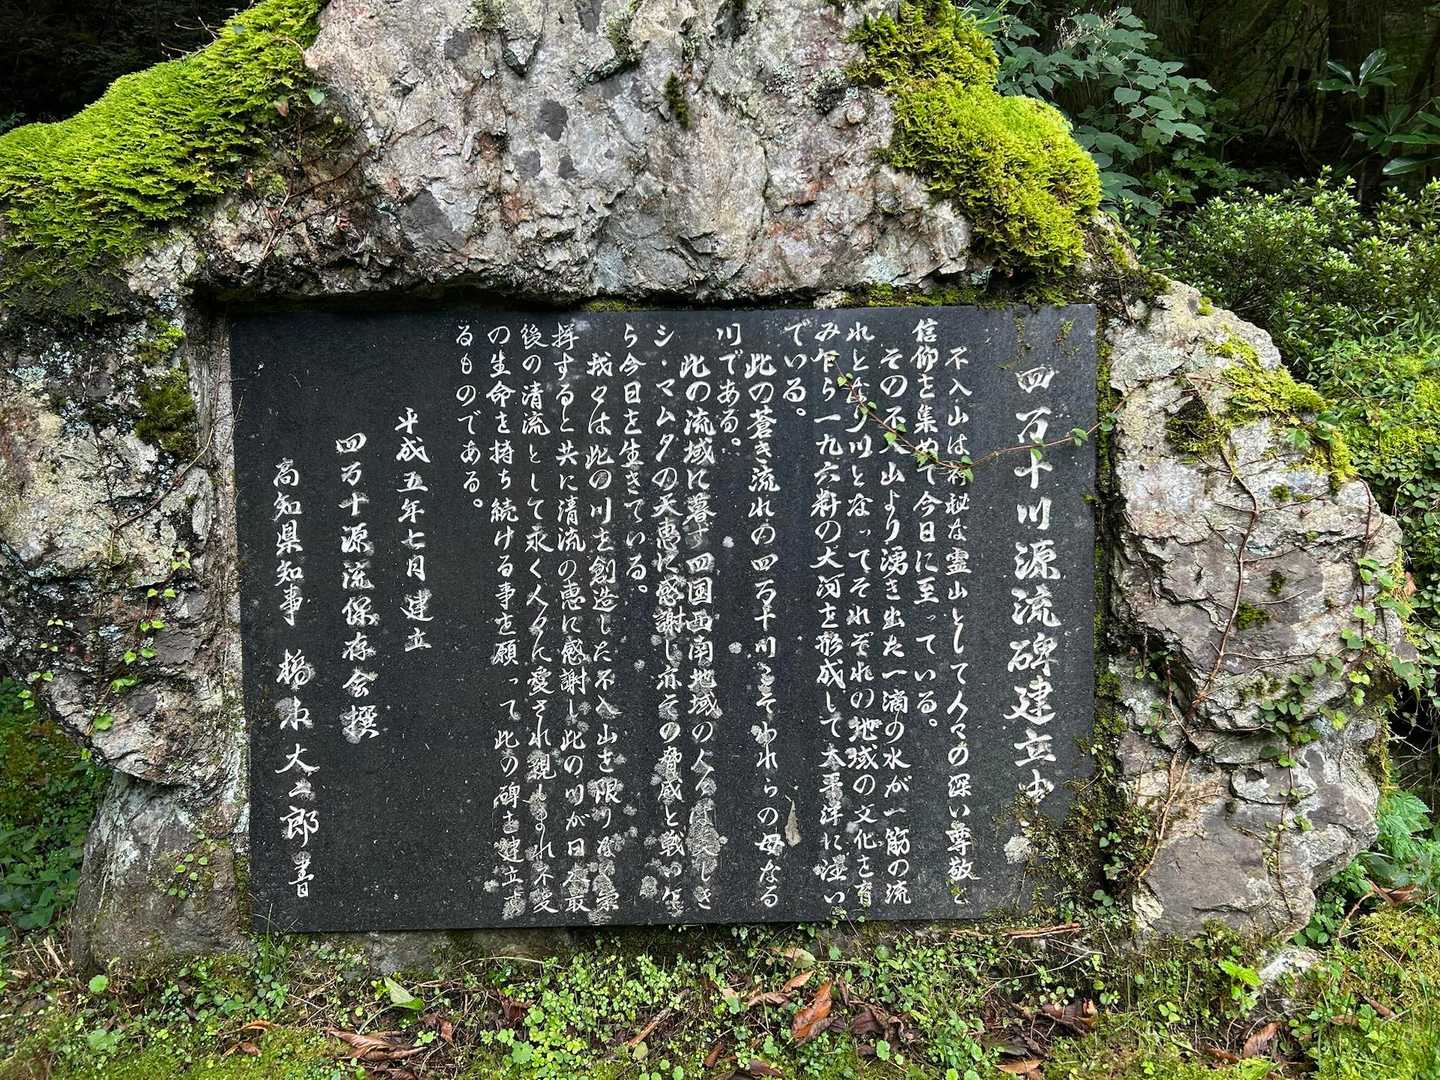 四万十川源流碑建立由
不入山は神秘な霊山として人々の深い尊敬と
信仰を集めて今日に至っている。
その不入山より湧き出た一滴の水が一筋の流
れとなり川となってそれぞれの地域の文化を育
み乍ら一九六粁の大河を形成して太平洋に注い
でいる。
此の蒼き流れの四万十川こそわれらの母なる
川である。
此の流域に暮す四国西南地域の人々は美しき
シ・マムタの天恵に感謝し亦その脅威と戦い乍
ら今日を生きている。
我々は此の川を創造した不入山を限りなく崇
拝すると共に清流の恵に感謝し此の川が日本最
後の清流として永く人々に愛され親しまれ不変
の生命を持ち続ける事を願って此の碑を建立す
るものである。
平成五年七月建立
四万十源流保存会撰
高知県知事 橋本大二郎書